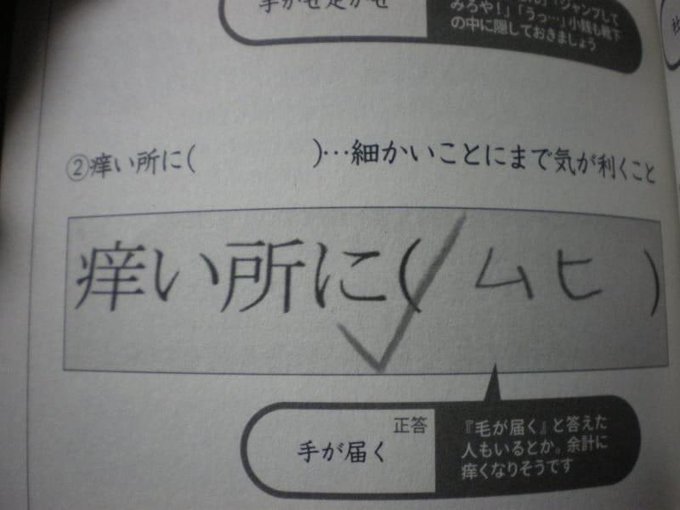 手かせ足かせ
「ジャンプして
みろや!」「うっ…」小銭も靴下
の中に隠しておきましょう
②痒い所に( )…細かいことにまで気が利くこと
痒い所に( ムヒ )
正答
手が届く
『毛が届く』と答えた
人もいるとか。余計に
痒くなりそうです